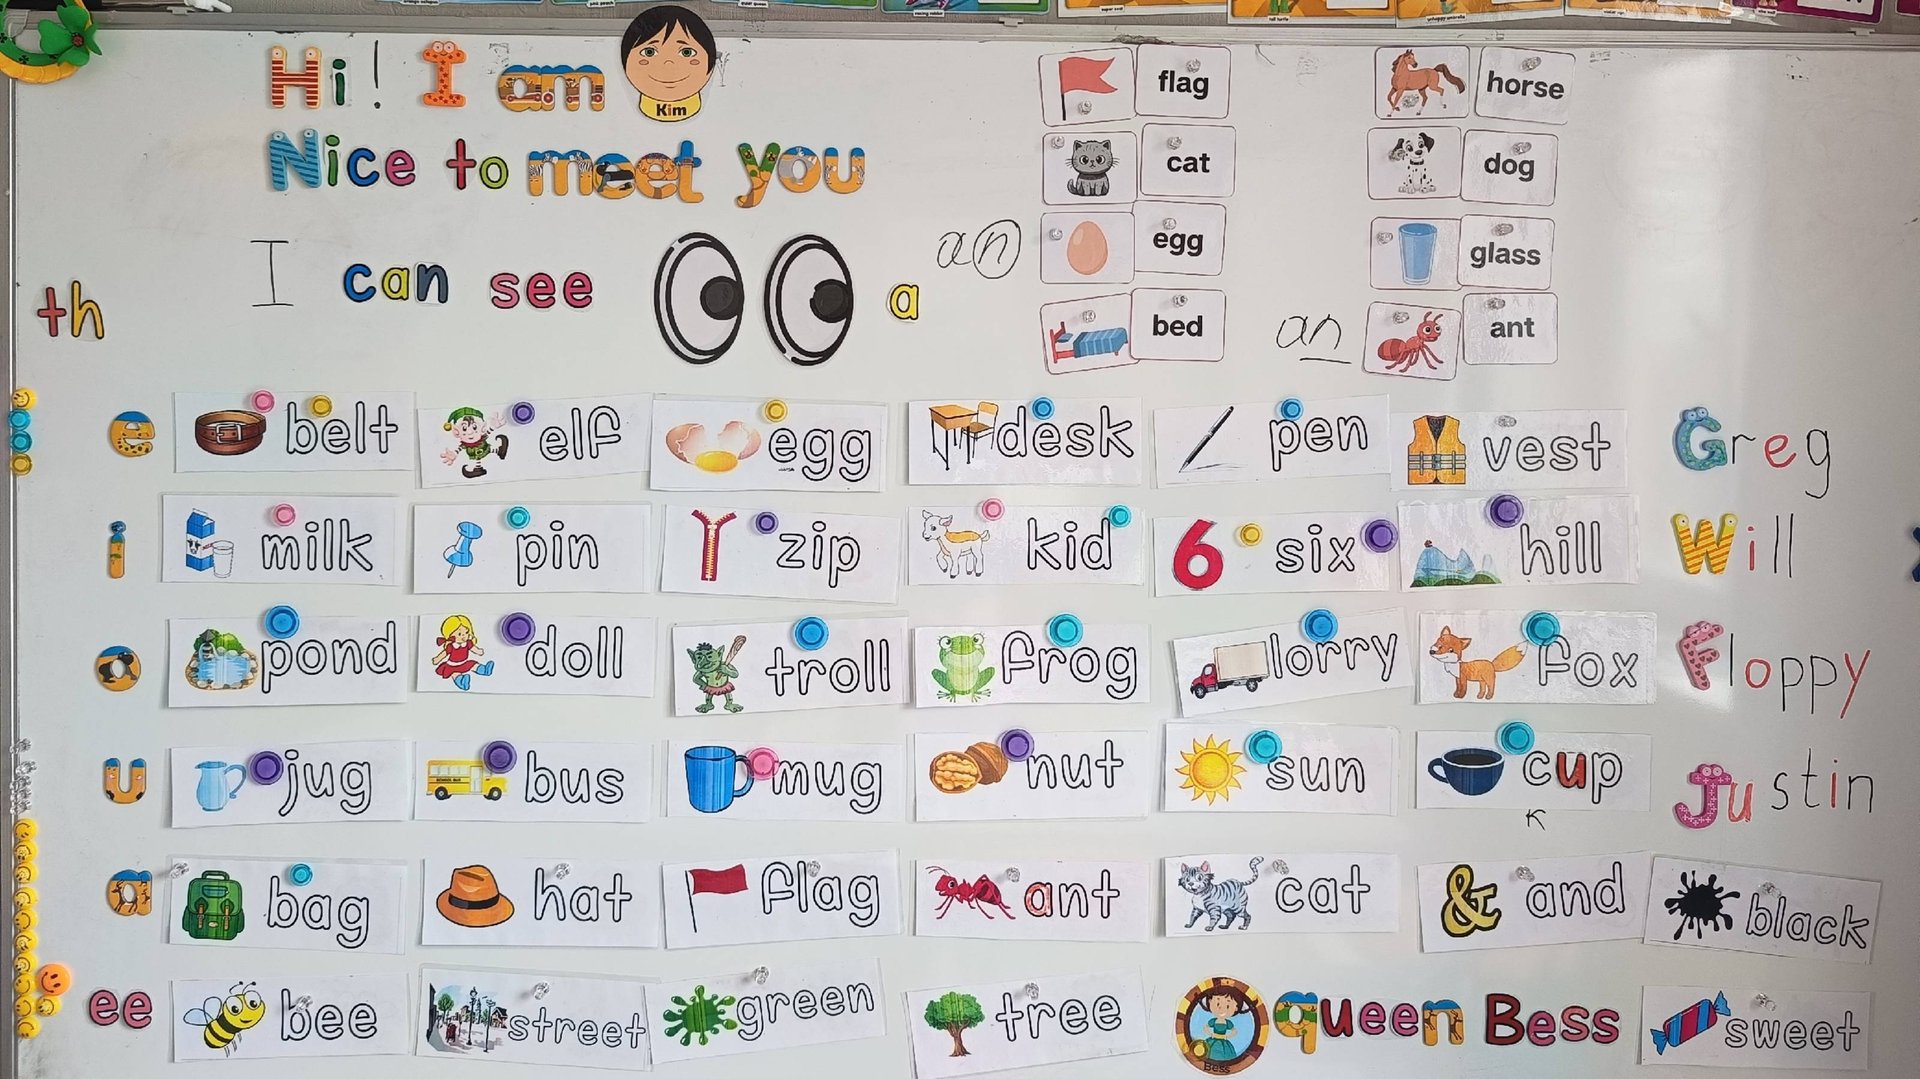 Hi! I am Kim
Nice to meet you
I can see a
th
flag
cat
an egg
bed
horse
dog
glass
an ant
e belt elf egg desk pen vest Greg
i milk pin zip kid 6 six hill Will
o pond doll troll frog lorry fox Floppy
u jug SCHOOL BUS bus mug nut sun cup Justin
a bag hat flag ant cat & and black
ee bee street green tree Bess queen Bess sweet